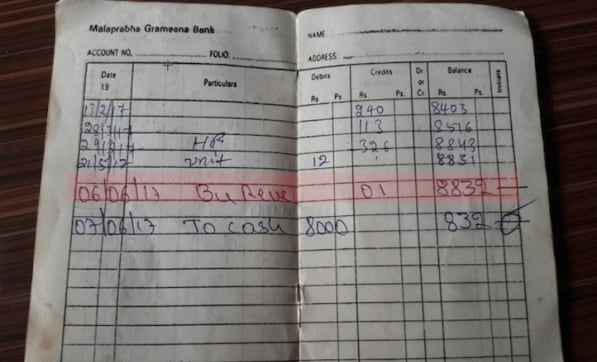 Malaprabha Grameena Bank
NAME
ACCOUNT NO. FOLIO.
ADDRESS.
Date 19 Particulars Debits Rs. Ps. Credits Rs. Ps. Dr. or Cr. Balance Rs. Ps. Initials
13/2/17 240 8403
113 8516
326 8843
12 8831
06/06/17 01 8832
07/06/17 To cash 8000 832